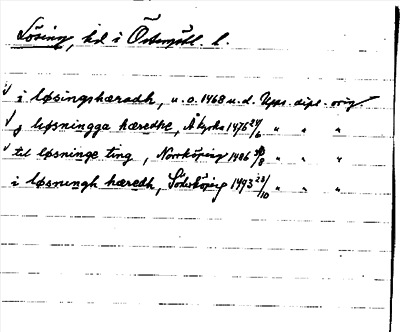 Lösing, hd i Östergötl. l.
i løsingshæradh, u. o. 1468 u. d. Upps. dipl. orig.
jløsningga hæredhe, Åby 1476 24/6 " " "
til løsninge ting, Norrköping 1486 30/8 " " "
i løsningh hæredh, Söderköping 1493 23/10 " " "